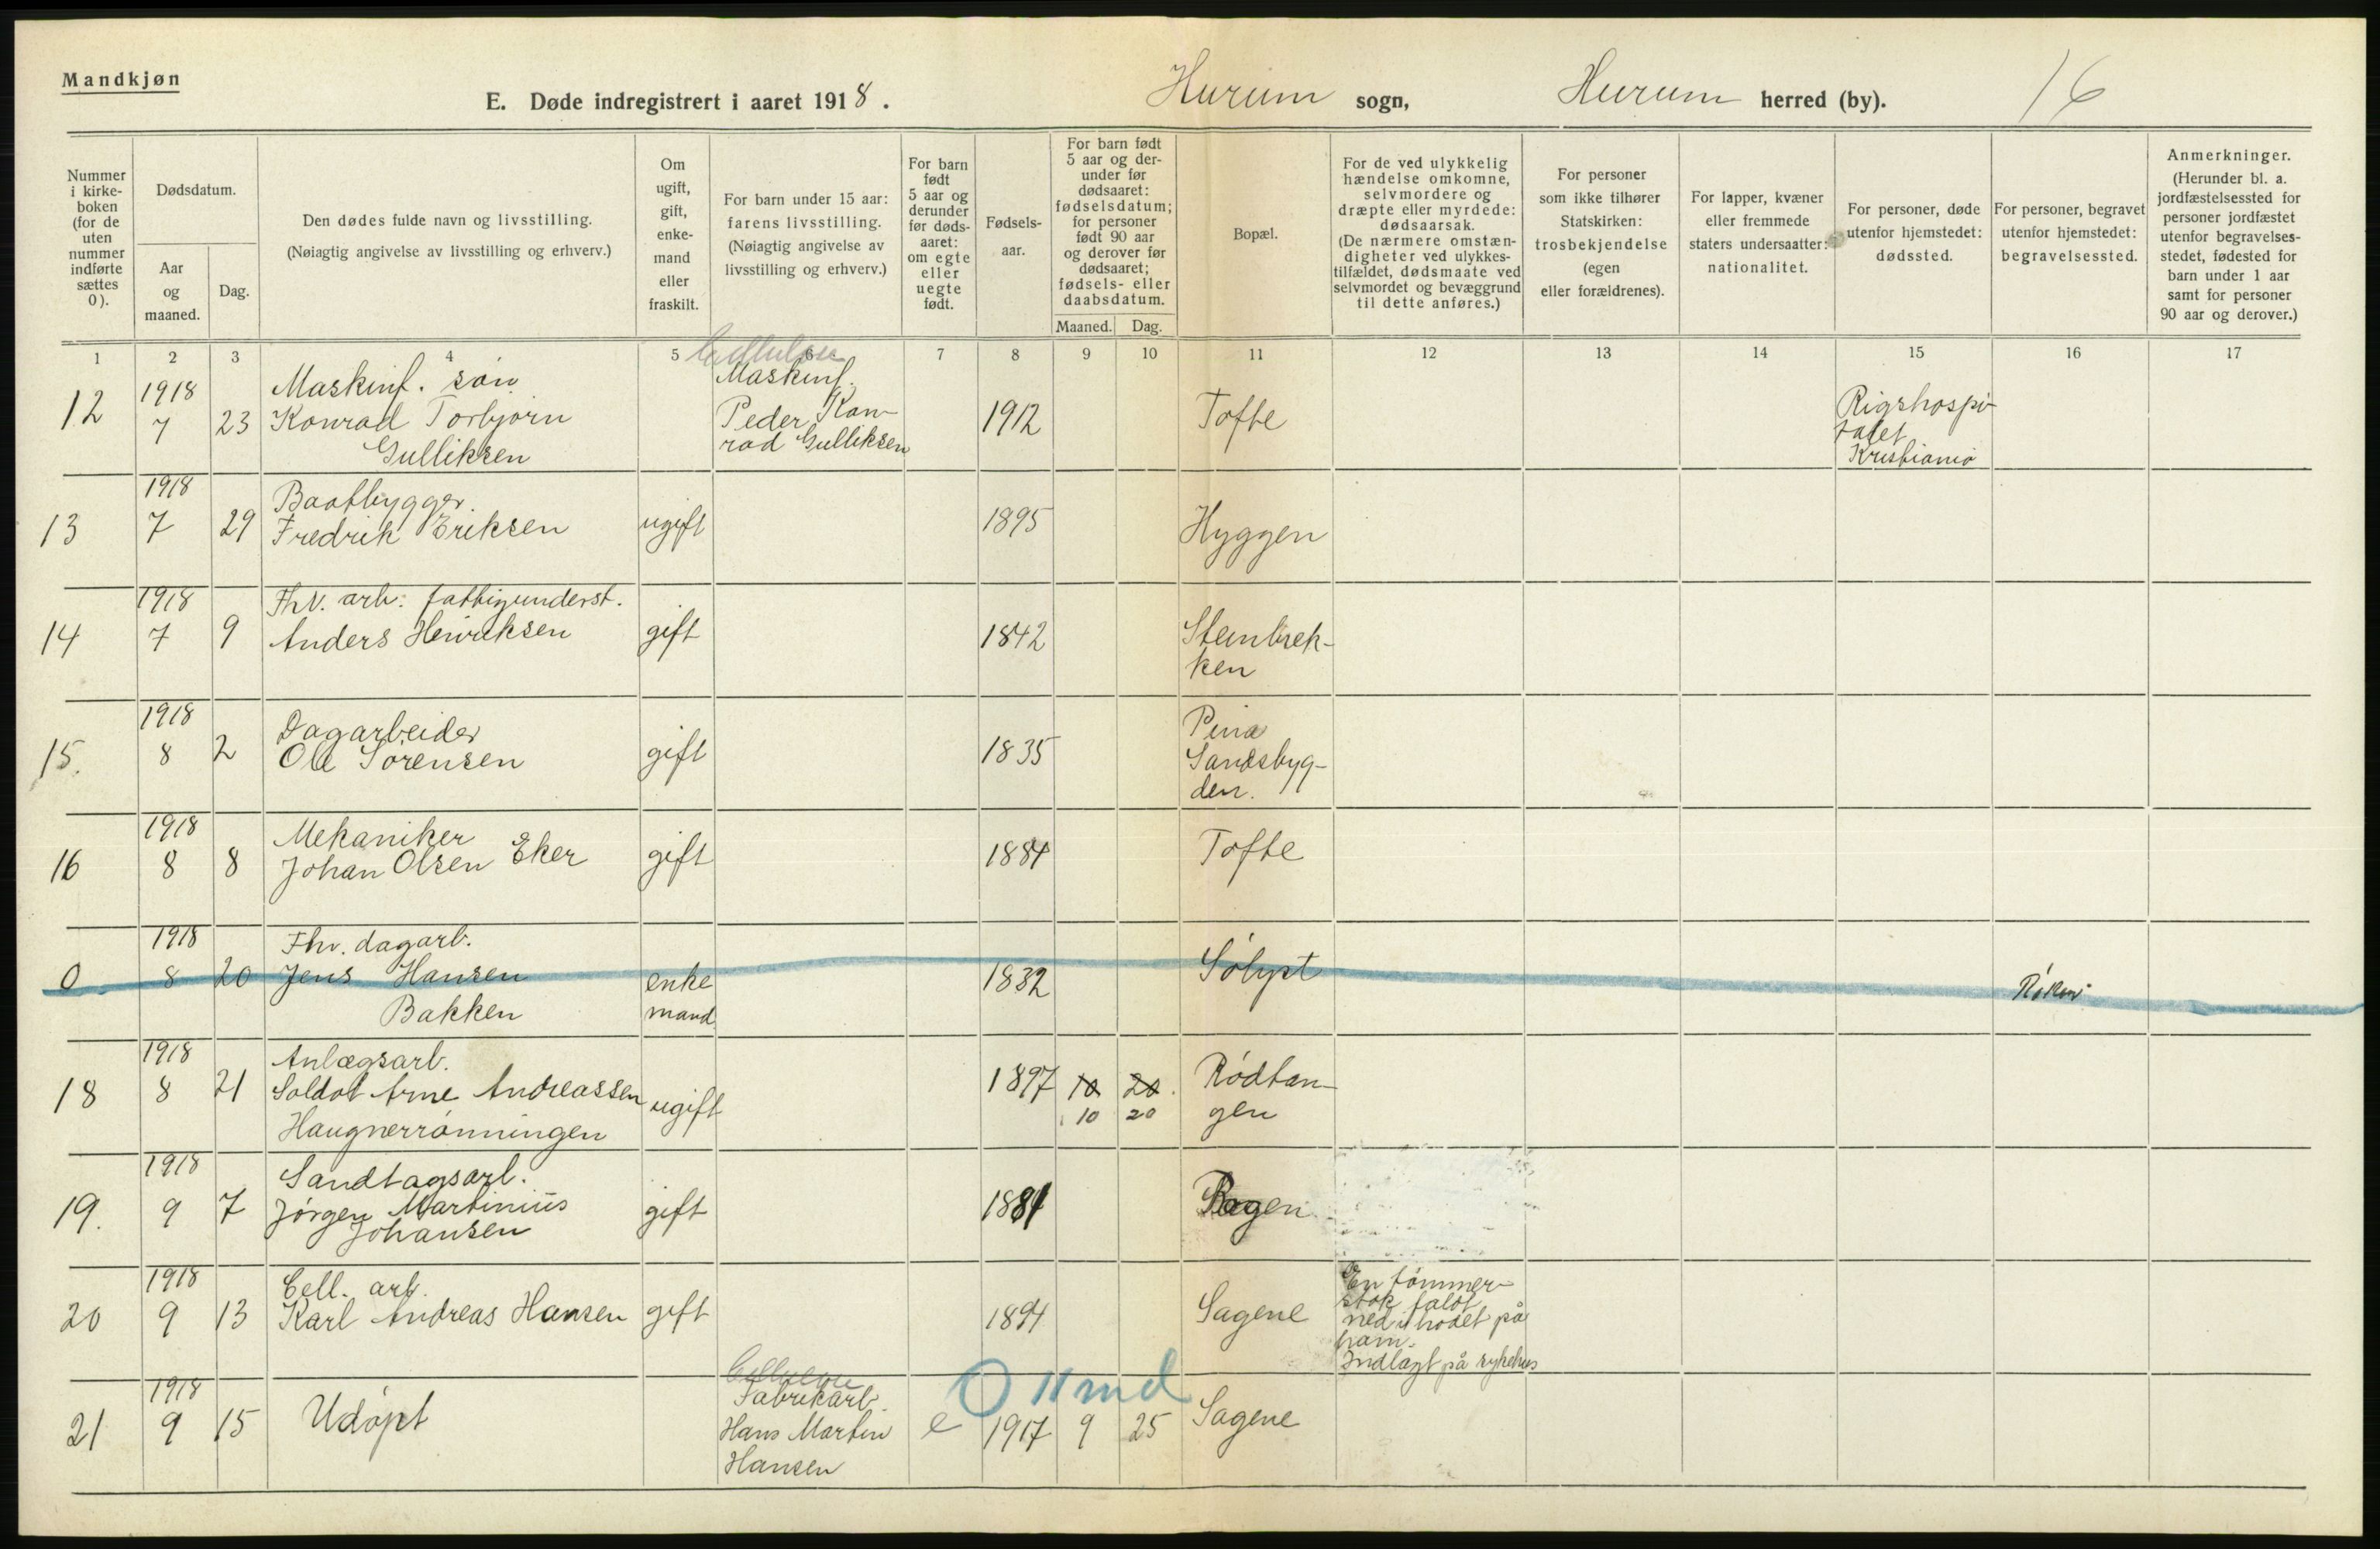 Mandkjøn
E. Døde indregistrert i aaret 1918.
Hurum sogn,
Hurum herred (by).
16
Nummer i kirke-boken (for de uten nummer indførte sættes 0).
Dødsdatum.
Aar og maaned.
Dag.
Den dødes fulde navn og livsstilling.
(Nøiagtig angivelse av livsstilling og erhverv.)
Om ugift, gift, enke-mand eller fraskilt.
For barn under 15 aar: farens livsstilling.
(Nøiagtig angivelse av livsstilling og erhverv.)
For barn født 5 aar og derunder før døds-aaret: om egte eller uegte født.
Fødsels-aar.
For barn født 5 aar og der-under før dødsaaret: fødselsdatum; for personer født 90 aar og derover før dødsaaret; fødsels- eller daabsdatum.
Maaned. Dag.
Bopæl.
For de ved ulykkelig hændelse omkomne, selvmordere og dræpte eller myrdede: dødsaarsak.
(De nærmere omstæn-digheter ved ulykkes-tilfældet, dødsmaate ved selvmordet og bevæggrund til dette anføres.)
For personer som ikke tilhører Statskirken: trosbekjendelse (egen eller forældrenes).
For lapper, kvæner eller fremmede staters undersaatter: nationalitet.
For personer, døde utenfor hjemstedet: dødssted.
For personer, begravet utenfor hjemstedet: begravelsessted.
Anmerkninger.
(Herunder bl. a. jordfæstelsessted for personer jordfæstet utenfor begravelses-stedet, fødested for barn under 1 aar samt for personer 90 aar og derover.)
1 2 3 4 5 6 7 8 9 10 11 12 13 14 15 16 17
12 1918 7 23 Maskinf. søn
Konrad Torbjørn
Gulliksen
Cellulose
Maskinf.
Peder Kon-
rad Gulliksen
1912 Tofte
Rigshospi-
talet
Kristiania
13 1918 7 29 Baatbygger.
Fredrik Eriksen ugift 1895 Hyggen
14 1918 7 9 Fhv. arb. fattigunderst.
Anders Henriksen gift 1842 Stenbrek-
ken
15. 1918 8 2 Dagarbeider
Ole Sørensen gift 1835
Pina
Sandsbyg-
den.
16 1918 8 8 Mekaniker
Johan Olsen Eker gift 1884 Tofte
0 1918 8 20 Fhv. dagarb.
Jens Hansen
Bakken
enke
mand
1832 Sølyst Røken
18 1918 8 21 Anlægsarb.
Soldat Arne Andreassen
Haugnerrønningen
ugift 1897 10 20
10 20
Rødtan-
gen
19. 1918 9 7 Sandtagsarb.
Jørgen Martinius
Johansen
gift 1881
20 1918 9 13 Cell. arb.
Karl Andreas Hansen gift 1894 Sagene
En tømmer-
stok faldt
ned i hodet på
ham.
Indlagt på sykehus
21 1918 9 15 Udøpt
Cellulose
Fabrikarb.
Hans Martin
Hansen
e 1917 9 25 Sagene
0 11 md